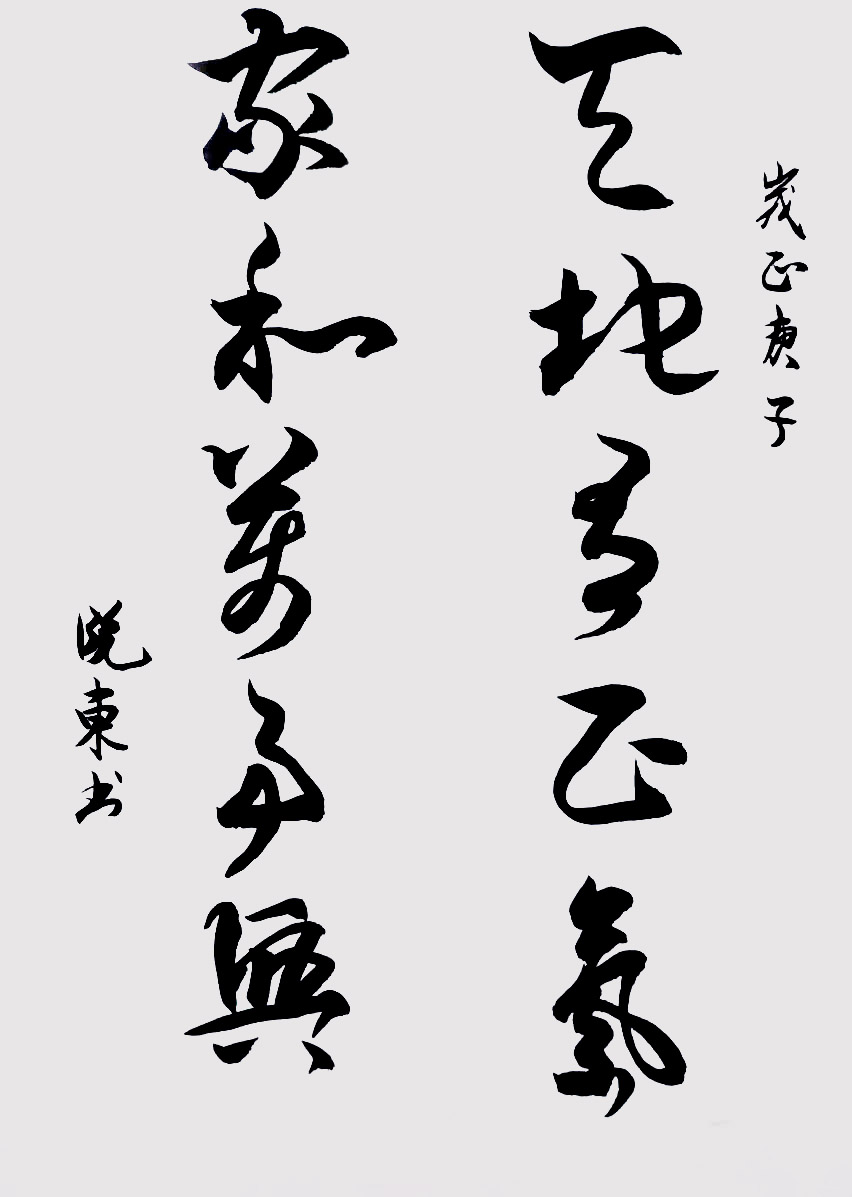 歲正庚子
天地有正氣
家和萬事興
晓東书